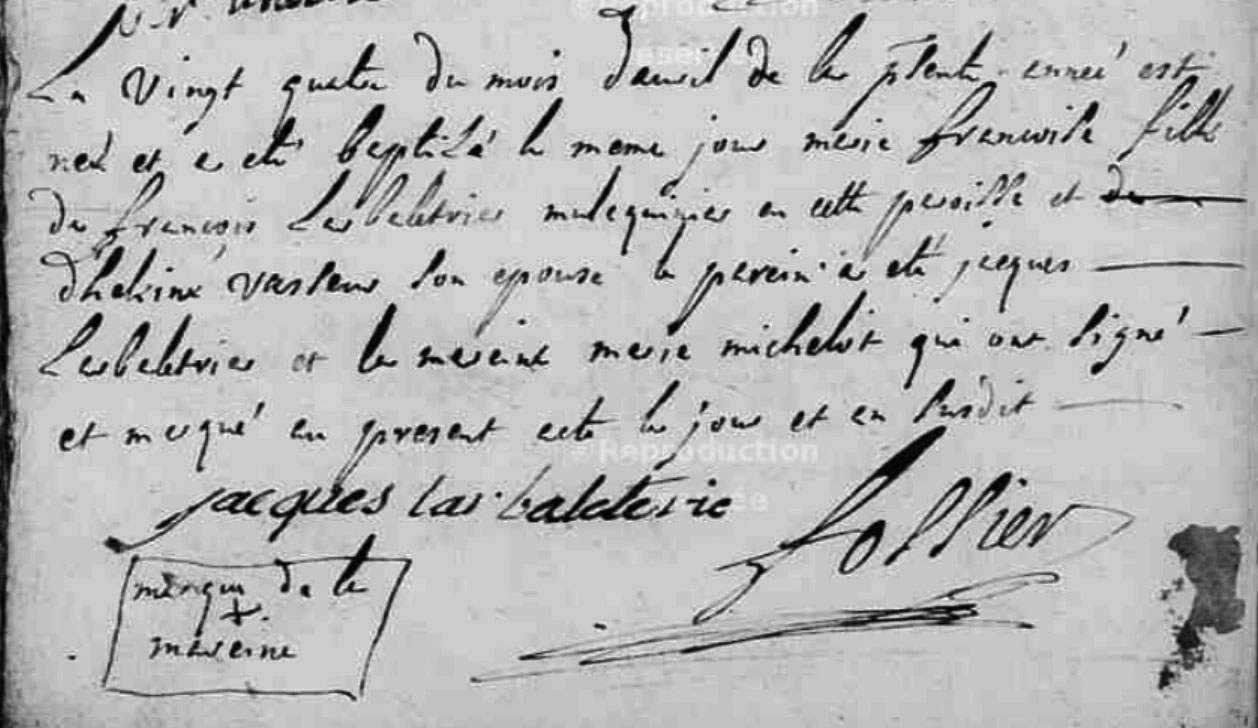 Le vingt quatre du mois d'avril de la pñte année est
née et a eté baptisé le meme jour marie francoise fille
de francois Larbaletrier mulequinier en cette paroisse et de
d'helaine vasseur son epouse le parein a eté jacques
Larbaletrier et la mareine marie michelot qui ont signé
et marqué au present acte les jour et an susdit
jacques Lar baleterie
follier
marque de la
+
mareine
© Reproduction
© Reproduction